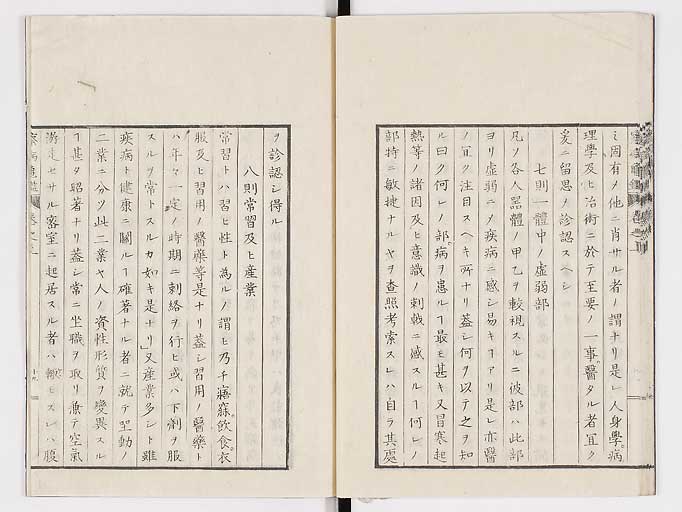 ミ固有ノ他ニ肖サル者ノ謂ナリ是レ人身學。病
理學及ヒ冶術ニ於テ至要ノ一事。醫タル者宜ク
爰ニ留思ノ診認スヘシ
七則一體中ノ虚弱部
凡ソ各人器體ノ甲乙ヲ較視スルニ彼部ハ此部
ヨリ虚弱ニノ疾病ニ感シ易キヿアリ是レ亦醫
ノ宜ク注目スヘキ所ナリ蓋シ何ヲ以テ之ヲ知
ル曰ク何レノ部。病ヲ患ルヿ最モ甚キ又冒寒起
熱等ノ諸因及ヒ意識ノ刺戟ニ感スルヿ何レノ
部特ニ敏捷ナルヤヲ査照考索スレハ自ラ其處
ヲ診認シ得ル
八則常習及ヒ産業
常習トハ習ヒ性ト為ルノ謂ヒ乃チ寤寐。飲食。衣
服及ヒ習用ノ醫藥等是ナリ蓋シ習用ノ醫藥ト
ハ年々一定ノ時期ニ刺絡ヲ行ヒ或ハ下劑ヲ服
スルヲ常トスルカ如キ是ナリ」又産業多シト雖
疾病ト健康ニ關ルヿ確著ナル者ニ就テ坐動ノ
二業ニ分ツ此二業ヤ人ノ資性形質ヲ變異スル
ヿ甚タ昭著ナリ蓋シ常ニ坐職ヲ取リ無テ空氣
衝走セサル密室ニ起居スル者ハ動モスレハ腹